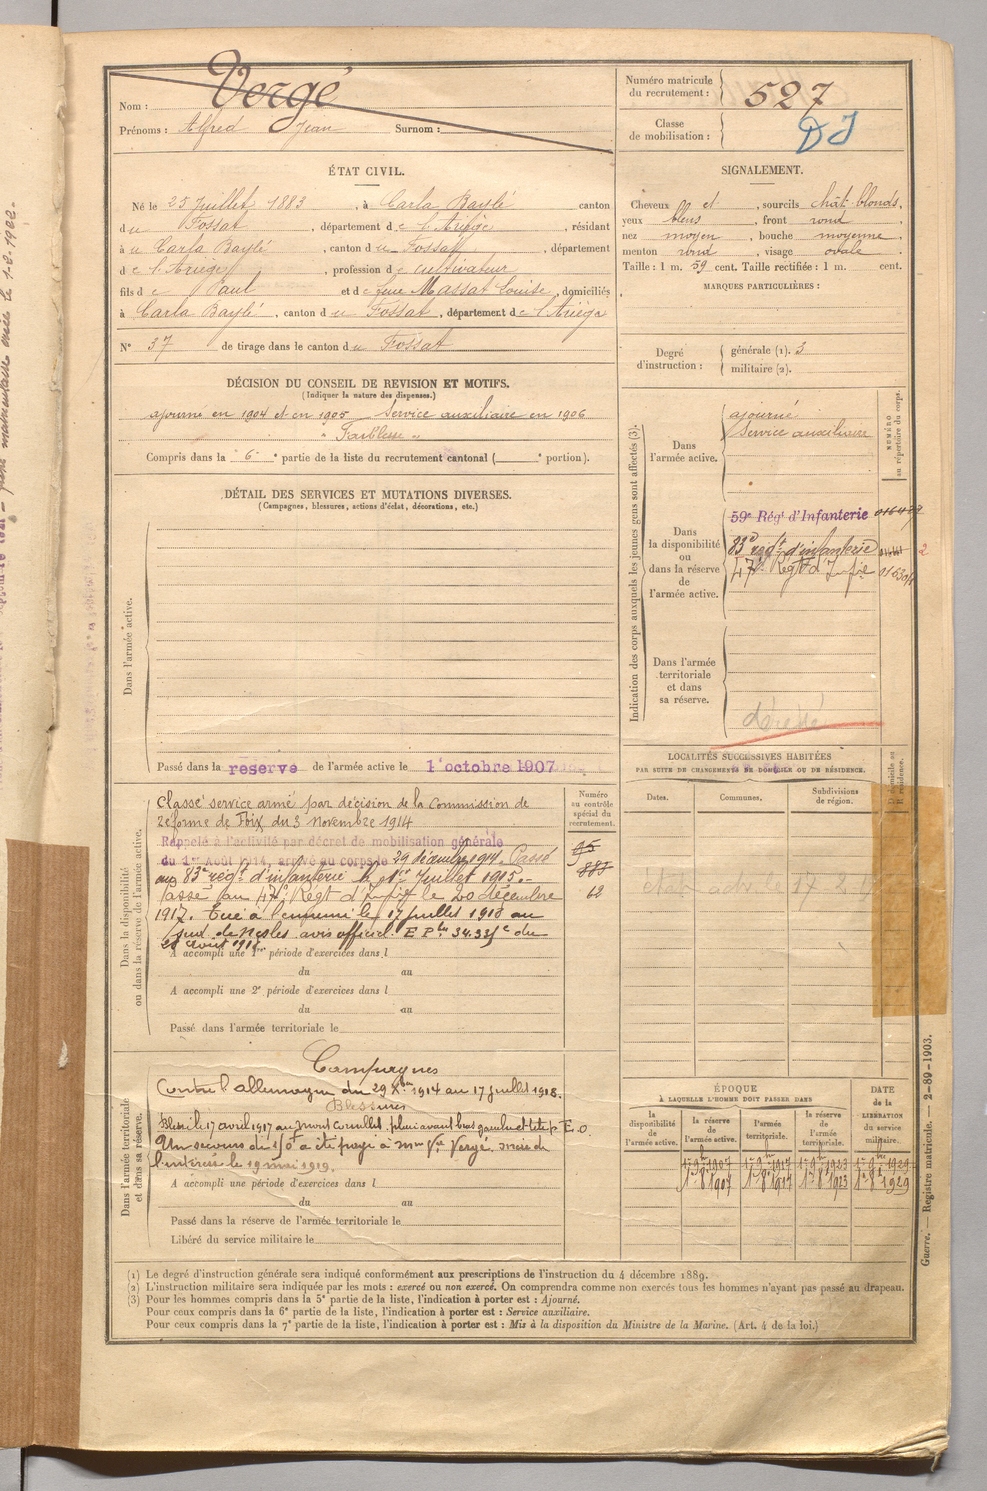 Nom : Vergé
Prénoms : Alfred Jean Surnom :
Numéro matricule du recrutement : 527
Classe de mobilisation :
ÉTAT CIVIL.
Né le 25 Juillet 1883, à Carla Baylé canton
du Fossat, département de l'Ariège, résidant
à u Carla Baylé, canton du Fossat, département
de l'Ariège, profession de cultivateur
fils de Paul et de Massat Louise, domiciliés
à Carla Baylé, canton du Fossat, département de l'Ariège
N° 37 de tirage dans le canton du Fossat
SIGNALEMENT.
Cheveux et, sourcils chât-blonds,
yeux bleus, front rond
nez moyen, bouche moyenne,
menton rond, visage ovale.
Taille : 1 m. 59 cent. Taille rectifiée : 1 m. cent.
MARQUES PARTICULIÈRES :
Degré d'instruction : générale (1). 3
militaire (2).
DÉCISION DU CONSEIL DE REVISION ET MOTIFS.
(Indiquer la nature des dispenses.)
ajourné en 1904 et en 1905 Service auxiliaire en 1906
" Faiblesse "
Compris dans la 6e partie de la liste du recrutement cantonal ( e portion).
DÉTAIL DES SERVICES ET MUTATIONS DIVERSES.
(Campagnes, blessures, actions d'éclat, décorations, etc.)
Dans l'armée active.
Passé dans la réserve de l'armée active le 1 octobre 1907
Indication des corps auxquels les jeunes gens sont affectés (3).
NUMÉRO au répertoire du corps.
Dans l'armée active.
ajourné
Service auxiliaire
Dans la disponibilité ou dans la réserve de l'armée active.
59e Régt d'Infanterie
83e régt d'infanterie
47e Régt d'Infie
Dans l'armée territoriale et dans sa réserve.
Dans la disponibilité ou dans la réserve de l'armée active.
Classé service armé par décision de la Commission de
réforme de Foix du 3 novembre 1914
Rappelé à l'activité par décret de mobilisation générale
du 1er Août 1914, arrivé au corps le 29 décembre 1914. Passé
au 83e régt d'infanterie le 1er Juillet 1915.-
Passé au 47e Régt d'Infie le 20 décembre
1917. Tué à l'ennemi le 17 juillet 1918 au
sud de Nesles avis officiel du
août 1918.
A accompli une 1re période d'exercices dans l
du au
A accompli une 2e période d'exercices dans l
du au
Passé dans l'armée territoriale le
Numéro au contrôle spécial du recrutement.
95
887
62
LOCALITÉS SUCCESSIVES HABITÉES
PAR SUITE DE CHANGEMENTS DE DOMICILE OU DE RÉSIDENCE.
Dates. Communes. Subdivisions de région.
Dans l'armée territoriale et dans sa réserve.
Campagnes
Contre l'allemagne du 29 Xbre 1914 au 17 juillet 1918.
Blessures
Blessé le 17 avril 1917 au mont Cornillet, plaie avant bras gauche et tête p. E. O.
Un secours de 150f a été payé à Mme Vve Vergé, mère de
l'intéressé le 19 mai 1919.
A accompli une période d'exercices dans l
du au
Passé dans la réserve de l'armée territoriale le
Libéré du service militaire le
ÉPOQUE
A LAQUELLE L'HOMME DOIT PASSER DANS
la disponibilité de l'armée active. la réserve de l'armée active. l'armée territoriale. la réserve de l'armée territoriale.
DATE de la LIBÉRATION DU SERVICE militaire.
1er 8bre 1907 1er 8bre 1917 1er 8bre 1923 1er 8bre 1929
(1) Le degré d'instruction générale sera indiqué conformément aux prescriptions de l'instruction du 4 décembre 1889.
(2) L'instruction militaire sera indiquée par les mots : exercé ou non exercé. On comprendra comme non exercés tous les hommes n'ayant pas passé au drapeau.
(3) Pour les hommes compris dans la 5e partie de la liste, l'indication à porter est : Ajourné.
Pour ceux compris dans la 6e partie de la liste, l'indication à porter est : Service auxiliaire.
Pour ceux compris dans la 7e partie de la liste, l'indication à porter est : Mis à la disposition du Ministre de la Marine. (Art. 4 de la loi.)
Guerre. — Registre matricule. — 2-89-1903.